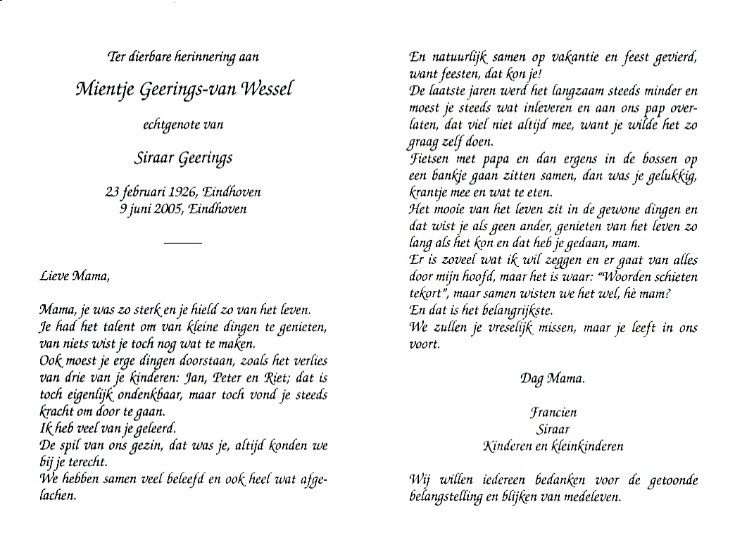 Ter dierbare herinnering aan
Mientje Geerings-van Wessel
echtgenote van
Siraar Geerings
23 februari 1926, Eindhoven
9 juni 2005, Eindhoven
Lieve Mama,
Mama, je was zo sterk en je hield zo van het leven.
Je had het talent om van kleine dingen te genieten,
van niets wist je toch nog wat te maken.
Ook moest je erge dingen doorstaan, zoals het verlies
van drie van je kinderen: Jan, Peter en Riet; dat is
toch eigenlijk ondenkbaar, maar toch vond je steeds
kracht om door te gaan.
Ik heb veel van je geleerd.
De spil van ons gezin, dat was je, altijd konden we
bij je terecht.
We hebben samen veel beleefd en ook heel wat afge-
lachen.
En natuurlijk samen op vakantie en feest gevierd,
want feesten, dat kon je!
De laatste jaren werd het langzaam steeds minder en
moest je steeds wat inleveren en aan ons pap over-
laten, dat viel niet altijd mee, want je wilde het zo
graag zelf doen.
Fietsen met papa en dan ergens in de bossen op
een bankje gaan zitten samen, dan was je gelukkig,
krantje mee en wat te eten.
Het mooie van het leven zit in de gewone dingen en
dat wist je als geen ander, genieten van het leven zo
lang als het kon en dat heb je gedaan, mam.
Er is zoveel wat ik wil zeggen en er gaat van alles
door mijn hoofd, maar het is waar: "Woorden schieten
tekort", maar samen wisten we het wel, hè mam?
En dat is het belangrijkste.
We zullen je vreselijk missen, maar je leeft in ons
voort.
Dag Mama.
Francien
Siraar
Kinderen en kleinkinderen
Wij willen iedereen bedanken voor de getoonde
belangstelling en blijken van medeleven.